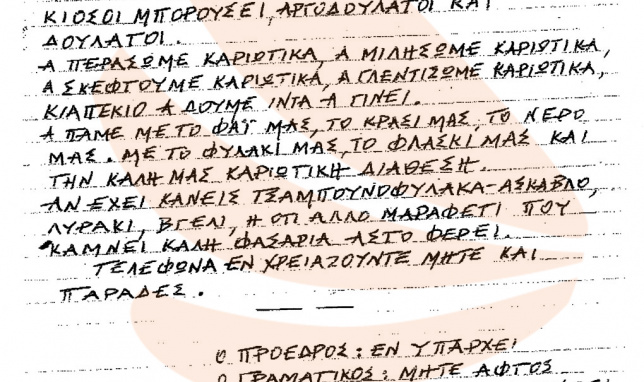 ΚΙΟΣΟΙ ΜΠΟΡΟΥΣΕΙ, ΑΡΓΟΔΟΥΛΑΤΟΙ ΚΑΙ
ΔΟΥΛΑΤΟΙ.
Α ΠΕΡΑΣΩΜΕ ΚΑΡΙΩΤΙΚΑ, Α ΜΙΛΗΣΩΜΕ ΚΑΡΙΩΤΙΚΑ,
Α ΣΚΕΦΤΟΥΜΕ ΚΑΡΙΩΤΙΚΑ, Α ΓΛΕΝΤΙΖΩΜΕ ΚΑΡΙΩΤΙΚΑ,
ΚΙΑΠΕΚΙΟ Α ΔΟΥΜΕ ΙΝΤΑ Α ΓΙΝΕΙ.
Α ΠΑΜΕ ΜΕ ΤΟ ΦΑΪ ΜΑΣ, ΤΟ ΚΡΑΣΙ ΜΑΣ, ΤΟ ΝΕΡΟ
ΜΑΣ. ΜΕ ΤΟ ΦΥΛΑΚΙ ΜΑΣ, ΤΟ ΦΛΑΣΚΙ ΜΑΣ ΚΑΙ
ΤΗΝ ΚΑΛΗ ΜΑΣ ΚΑΡΙΩΤΙΚΗ ΔΙΑΘΕΣΗ.
ΑΝ ΕΧΕΙ ΚΑΝΕΙΣ ΤΣΑΜΠΟΥΝΟΦΥΛΑΚΑ-ΑΣΚΑΒΛΟ,
ΛΥΡΑΚΙ, ΒΓΕΛΙ, Η ΟΤΙ ΑΛΛΟ ΜΑΡΑΦΕΤΙ ΠΟΥ
ΚΑΜΝΕΙ ΚΑΛΗ ΦΑΣΑΡΙΑ ΑΣΤΟ ΦΕΡΕΙ.
ΤΕΛΕΦΩΝΑ ΕΝ ΧΡΕΙΑΖΟΥΝΤΕ ΜΗΤΕ ΚΑΙ
ΠΑΡΑΔΕΣ.
Ο ΠΡΟΕΔΡΟΣ: ΕΝ ΥΠΑΡΧΕΙ
Ο ΓΡΑΜΑΤΙΚΟΣ: ΜΗΤΕ ΑΦΤΟΣ